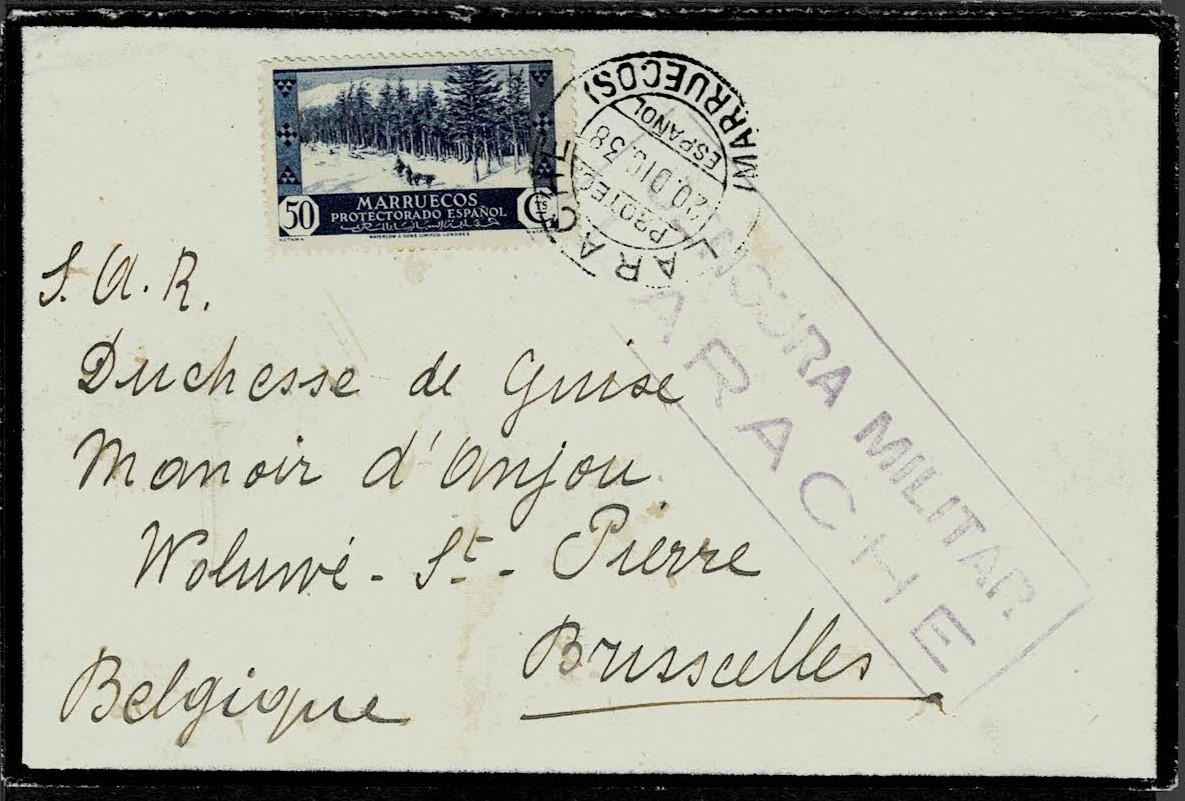 50
MARRUECOS
PROTECTORADO ESPAÑOL
Cts
KETAMA
WATERLOW & SONS LIMITED, LONDRES
LARACHE
(MARRUECOS)
PROTECT.
ESPAÑOL
20.DIC.38
CENSURA MILITAR
LARACHE
S. A. R.
Duchesse de Guise
Manoir d'Anjou
Woluwé - St - Pierre
Brusselles
Belgique